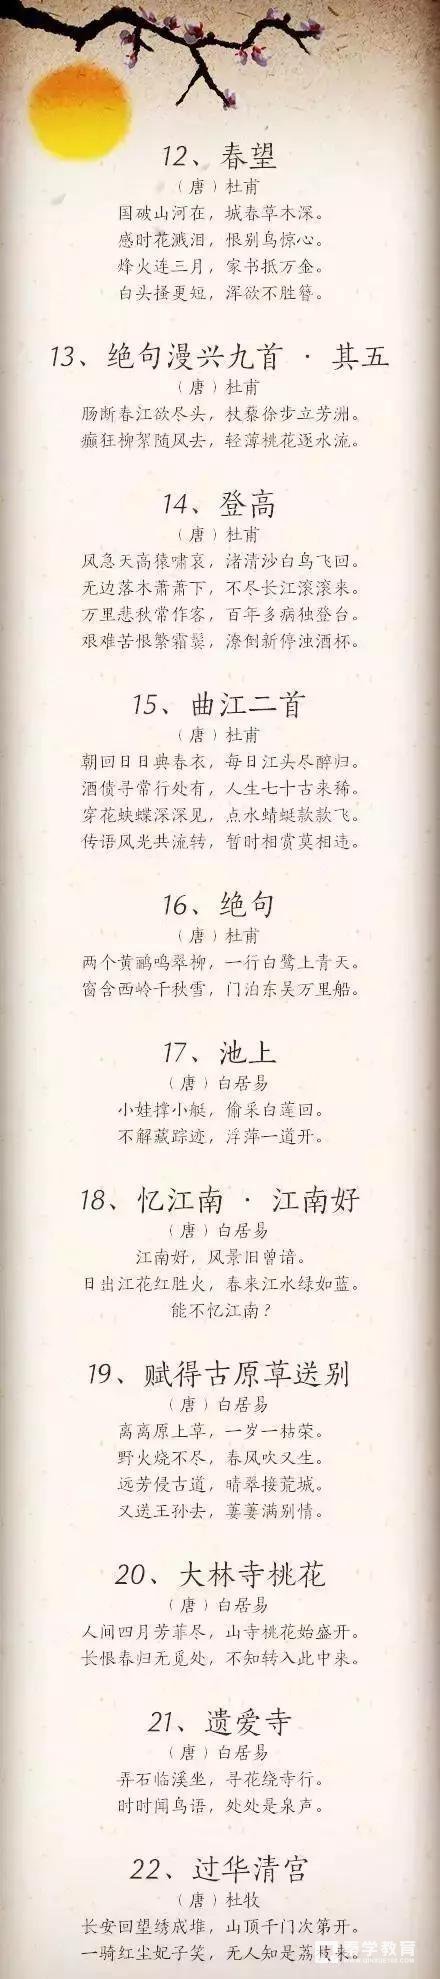 12、春望
（唐）杜甫
国破山河在，城春草木深。
感时花溅泪，恨别鸟惊心。
烽火连三月，家书抵万金。
白头搔更短，浑欲不胜簪。
13、绝句漫兴九首 · 其五
（唐）杜甫
肠断春江欲尽头，杖藜徐步立芳洲。
癫狂柳絮随风去，轻薄桃花逐水流。
14、登高
（唐）杜甫
风急天高猿啸哀，渚清沙白鸟飞回。
无边落木萧萧下，不尽长江滚滚来。
万里悲秋常作客，百年多病独登台。
艰难苦恨繁霜鬓，潦倒新停浊酒杯。
15、曲江二首
（唐）杜甫
朝回日日典春衣，每日江头尽醉归。
酒债寻常行处有，人生七十古来稀。
穿花蛱蝶深深见，点水蜻蜓款款飞。
传语风光共流转，暂时相赏莫相违。
16、绝句
（唐）杜甫
两个黄鹂鸣翠柳，一行白鹭上青天。
窗含西岭千秋雪，门泊东吴万里船。
17、池上
（唐）白居易
小娃撑小艇，偷采白莲回。
不解藏踪迹，浮萍一道开。
18、忆江南 · 江南好
（唐）白居易
江南好，风景旧曾谙。
日出江花红胜火，春来江水绿如蓝。
能不忆江南？
19、赋得古原草送别
（唐）白居易
离离原上草，一岁一枯荣。
野火烧不尽，春风吹又生。
远芳侵古道，晴翠接荒城。
又送王孙去，萋萋满别情。
20、大林寺桃花
（唐）白居易
人间四月芳菲尽，山寺桃花始盛开。
长恨春归无觅处，不知转入此中来。
21、遗爱寺
（唐）白居易
弄石临溪坐，寻花绕寺行。
时时闻鸟语，处处是泉声。
22、过华清宫
（唐）杜牧
长安回望绣成堆，山顶千门次第开。
一骑红尘妃子笑，无人知是荔枝来。
秦学教育